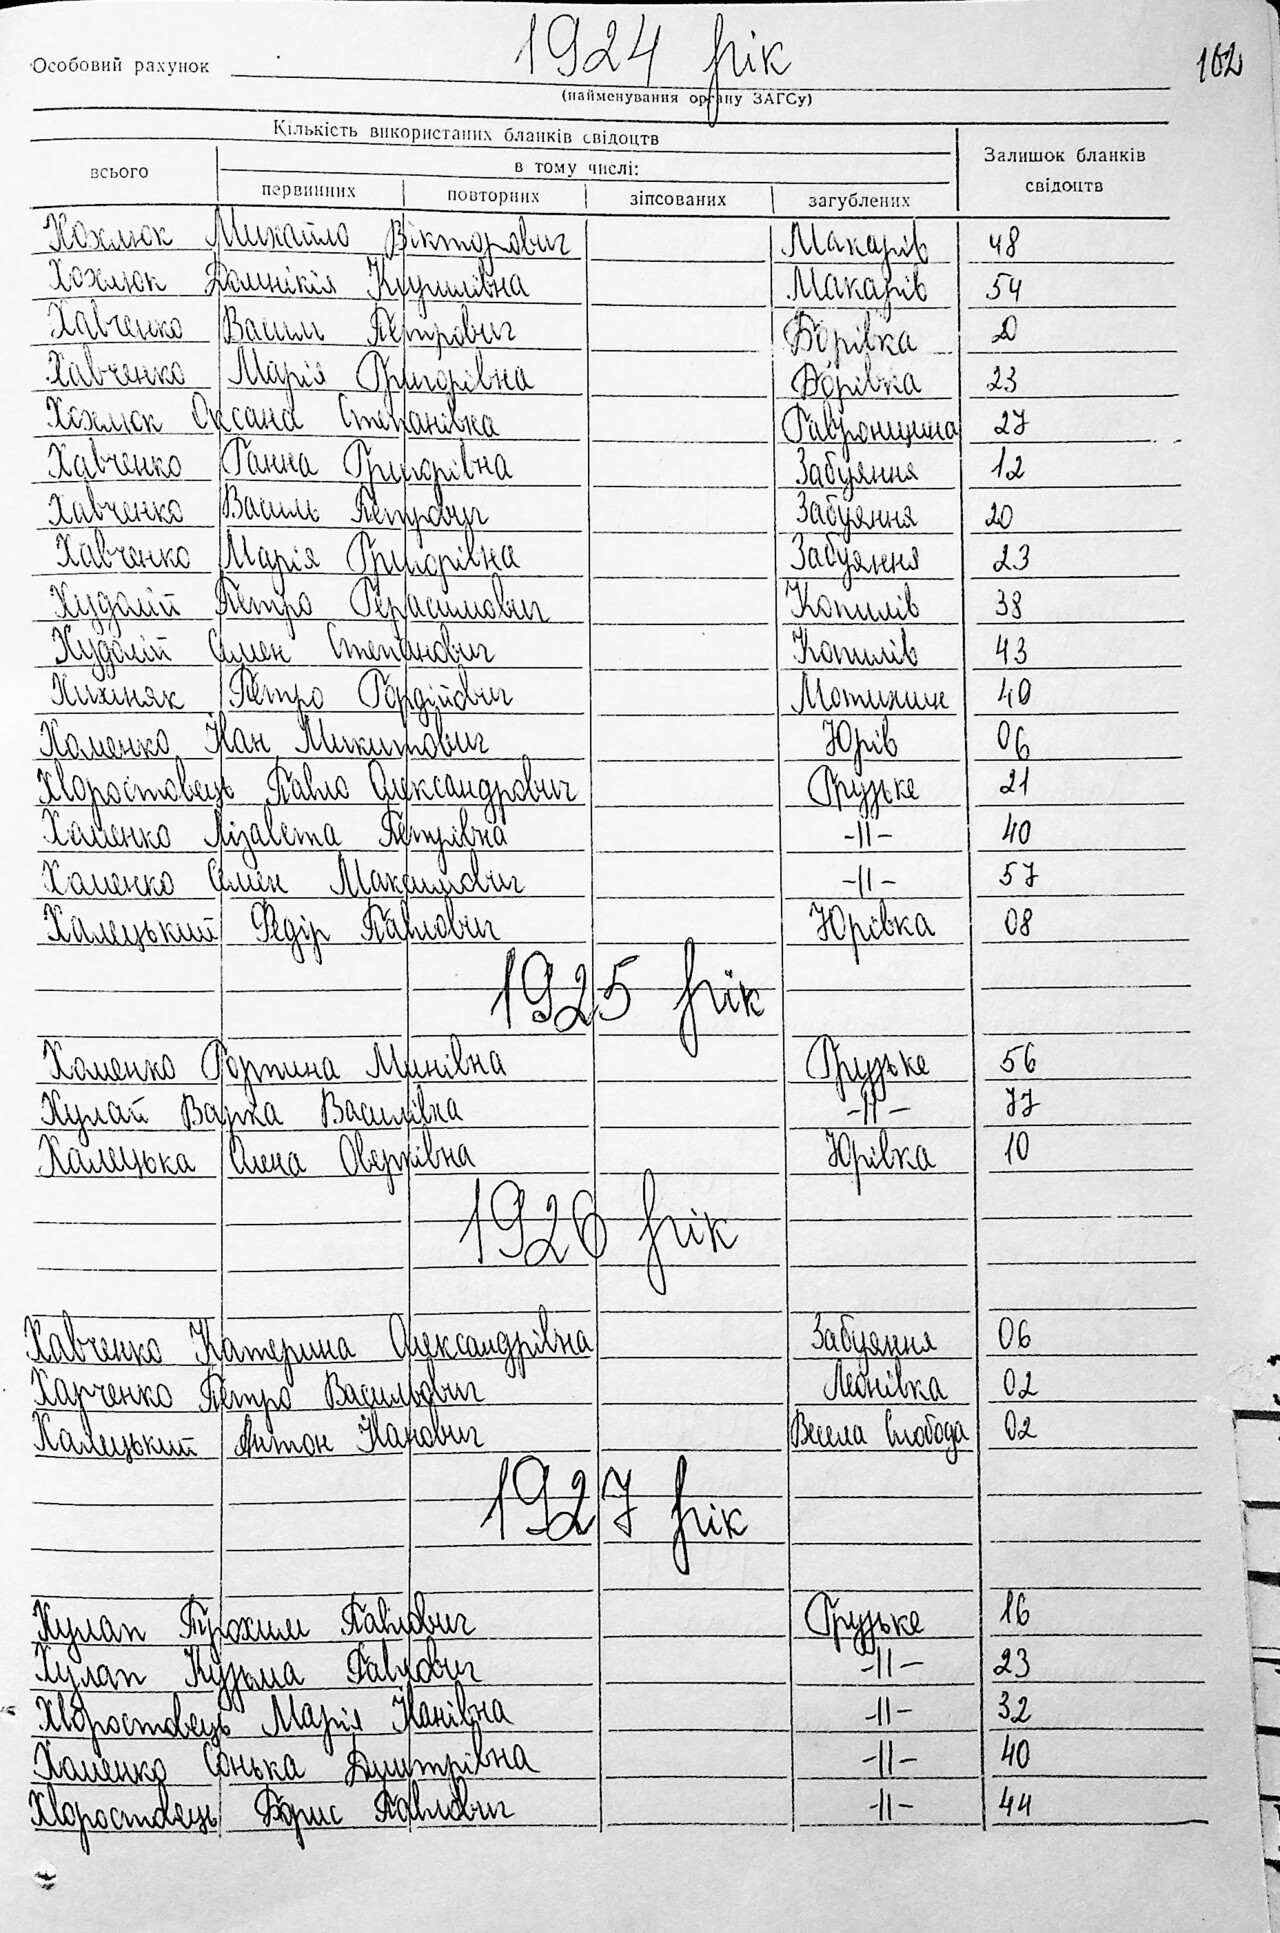 1924 рік
102
Особовий рахунок
(найменування органу ЗАГСу)
Кількість використаних бланків свідоцтв
Залишок бланків свідоцтв
всього
в тому числі:
первинних повторних зіпсованих загублених
Хохлюк Михайло Вікторович Макарів 48
Хохлюк Домнікія Кирилівна Макарів 54
Хавченко Василь Петрович Борівка 20
Хавченко Марія Григорівна Борівка 23
Хохлюк Оксана Степанівка Гавронщина 27
Хавченко Ганна Григорівна Забуяння 12
Хавченко Василь Петрович Забуяння 20
Хавченко Марія Григорівна Забуяння 23
Худолій Петро Герасимович Копилів 38
Худолій Семен Степанович Копилів 43
Хихняк Петро Гордійович Мотижин 40
Хоменко Іван Микитович Юрів 06
Хворостовець Павло Олександрович Грузьке 21
Хоменко Лізавета Петрівна -||- 40
Хоменко Семен Максимович -||- 57
Халецький Федір Павлович Юрівка 08
1925 рік
Хоменко Горпина Минівна Грузьке 56
Хулап Варка Василівна -||- 77
Халецька Олена Оверківна Юрівка 10
1926 рік
Хавченко Катерина Олександрівна Забуяння 06
Харченко Петро Васильович Леонівка 02
Халецький Антон Іванович Весела Слобода 02
1927 рік
Хулап Трохим Павлович Грузьке 16
Хулап Кузьма Павлович -||- 23
Хворостовець Марія Іванівна -||- 32
Хоменко Сонька Дмитрівна -||- 40
Хворостовець Борис Павлович -||- 44